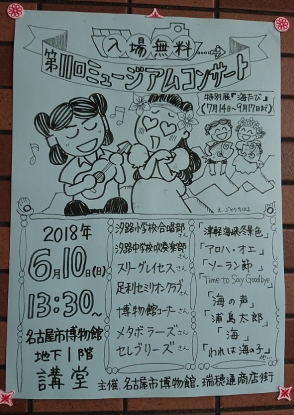 入場無料
第11回ミュージアムコンサート
特別展『海たび』
(7月14日～9月17日(祝))
2018年
6月10日(日)
13:30～
名古屋市博物館
地下1階
講堂
汐路小学校合唱部さん
汐路中学校吹奏楽部さん
スリーグレイセスさん
足利セミリオンクラブさん
博物館コーナーさん
メタボラーズさん
セレブリーズさん
「津軽海峡冬景色」
「アロハ・オエ」
「ソーラン節」
「Time to Say Goodbye」
「海の声」
「浦島太郎」
「海」
「われは海の子」
主催 名古屋市博物館、瑞穂通商店街